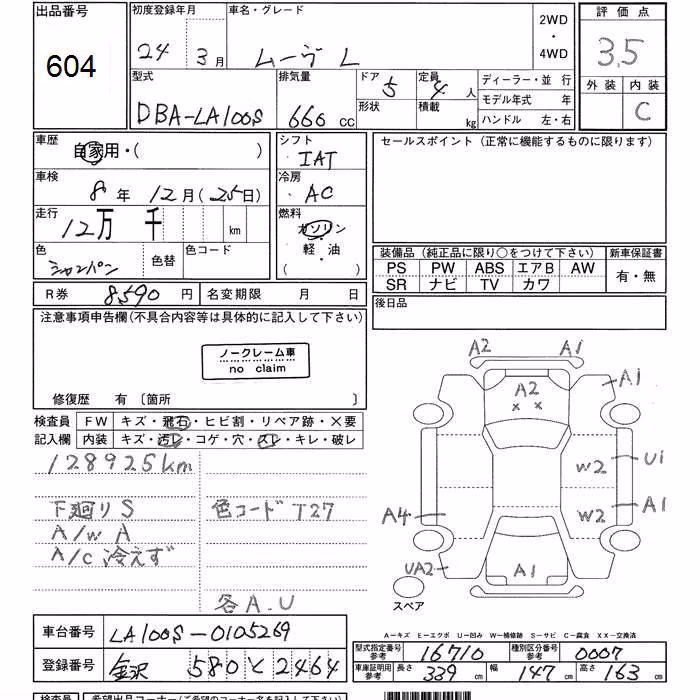 出品番号
604
初度登録年月
24年 3月
車名・グレード
ムーヴ L
2WD
・
4WD
評価点
3.5
外装 内装
C
型式
DBA-LA100S
排気量
660 cc
ドア 5
形状
定員 4 人
積載 kg
ディーラー・並 行
モデル年式 年
ハンドル 左・右
車歴
自家用・( )
シフト
IAT
セールスポイント (正常に機能するものに限ります)
車検
8年 12月 (25日)
冷房
AC
走行
12万 千 km
燃料
ガソリン
軽・油
( )
色
シャンパン
色替
色コード
装備品 (純正品に限り○をつけて下さい)
新車保証書
PS PW ABS エアB AW
SR ナビ TV カワ
有・無
R券 8590 円
名変期限 月 日
後日品
注意事項申告欄(不具合内容等は具体的に記入して下さい)
ノークレーム車
no claim
修復歴 有 〔箇所 〕
検査員
記入欄
FW キズ・飛石・ヒビ割・リペア跡・×要
内装 キズ・汚レ・コゲ・穴・スレ・キレ・破レ
128925km
下廻りS
色コード T27
A/W A
A/C 冷えず
各A.U
A2
A1
A2
A1
W2
U1
W2
A1
A4
UA2
A1
スペア
A-キズ E-エクボ U-凹み W-補修跡 S-サビ C-腐食 XX-交換済
車台番号
LA100S-0105269
登録番号
金沢 580 と 2464
型式指定番号
参考
16710
種別区分番号
参考
0007
車庫証明用
参考
長さ 339 cm
幅 147 cm
高さ 163 cm
検査員
希望出品コーナー(ご希望のコーナー名を記入して下さい)